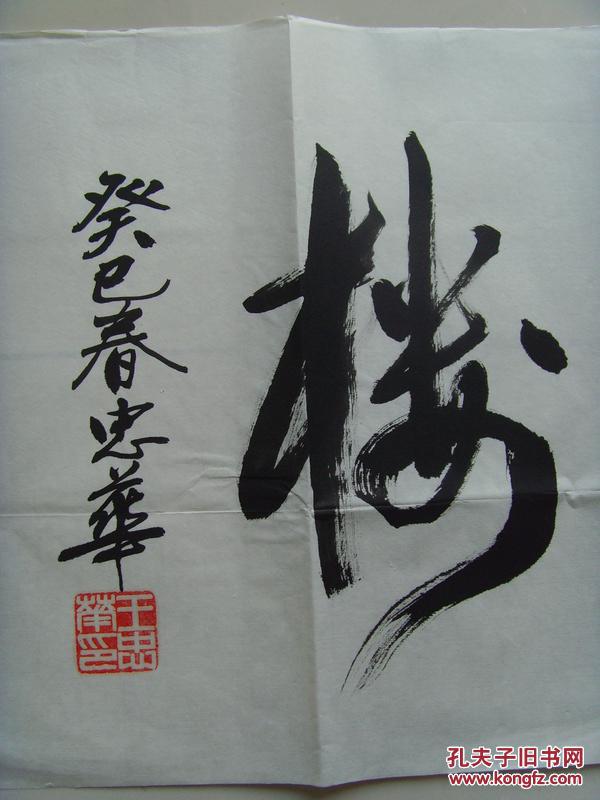 楼
癸巳春忠華
王忠
華印
孔夫子旧书网
www.kongfz.com